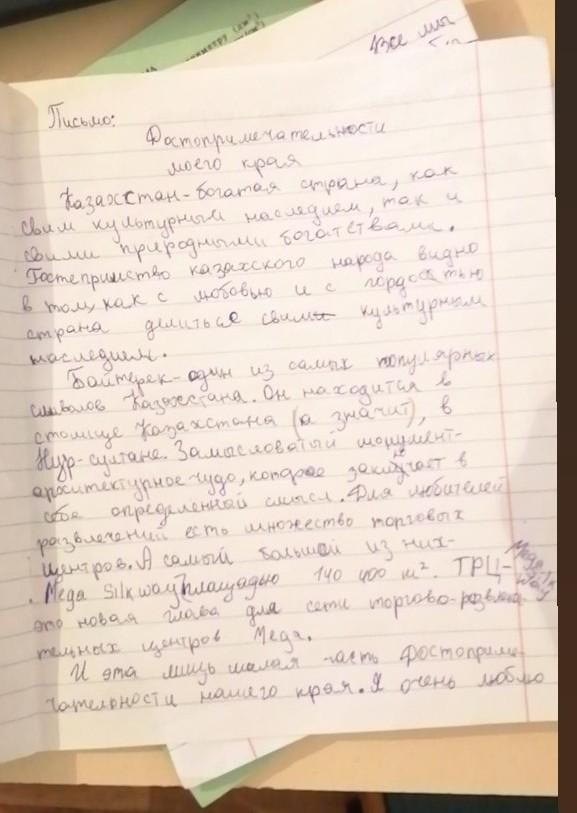 Все мы
Письмо:
Достопримечательности
моего края
Казахстан-богатая страна, как
своим культурным наследием, так и
своими природными богатствами.
Гостеприимство казахского народа видно
в том, как с любовью и с гордостью
страна делиться свим культурным
наследием.
Байтерек-один из самых популярных
символов Казахстана. Он находится в
столице Казахстана (а значит), в
Нур-султане. Замысловатый монумент-
архитектурное чудо, которое заключает в
себе определенный смысл. Для любителей
развлечений есть множество торговых
центров. А самый большой из них-
Mega Silkway площадью 140 400 м². ТРЦ- Mega Silk way
это новая глава для сети торгово-развлека-
тельных центров Mega.
И эта лишь малая часть достоприме-
чательности нашего края. Я очень люблю